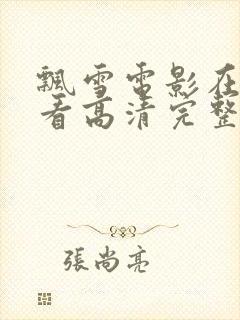 飘雪电影在
看高清完整
張尚亮